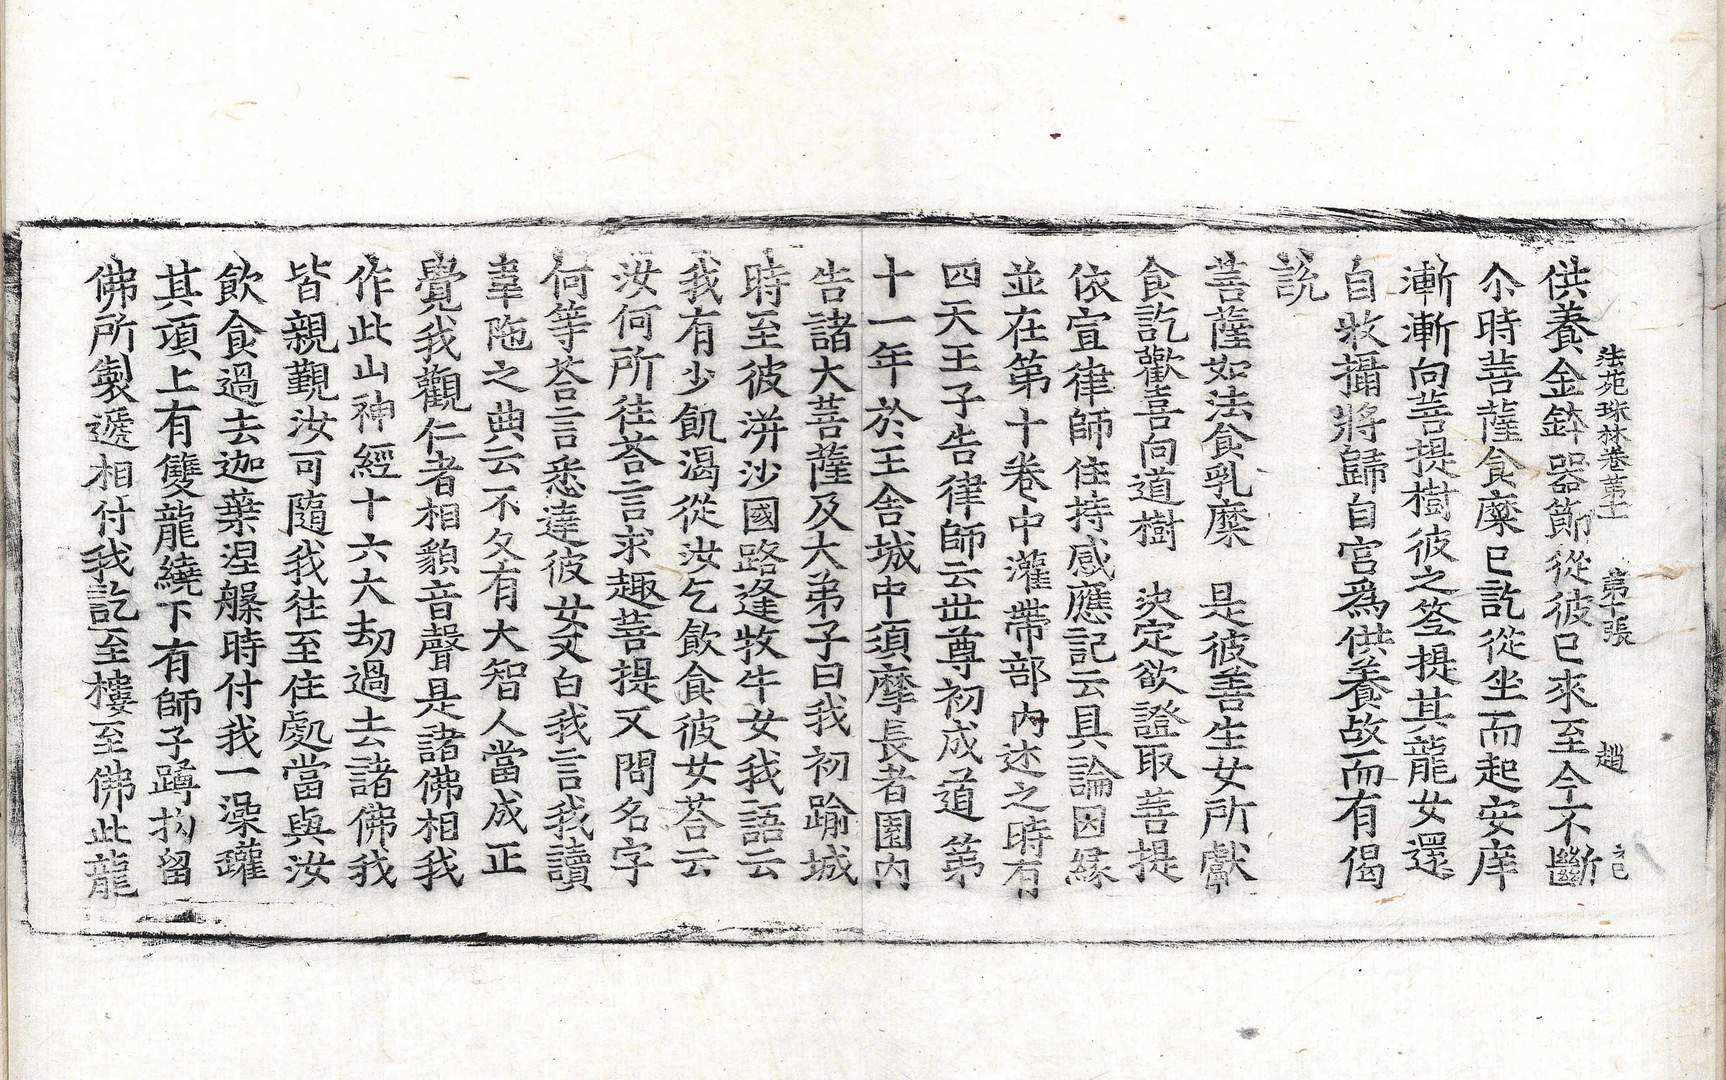 法苑珠林卷第十一 第十張 趙 己
供養金鉢器節從彼已來至今不斷
尒時菩薩食糜已訖從坐而起安庠
漸漸向菩提樹彼之筌提其龍女還
自收攝將歸自宮爲供養故而有偈
説
菩薩如法食乳糜 是彼善生女所獻
食訖歡喜向道樹 決定欲證取菩提
依宣律師住持感應記云具論因緣
並在第十卷中灌帶部內述之時有
四天王子告律師云世尊初成道第
十一年於王舍城中須摩長者園內
告諸大菩薩及大弟子曰我初踰城
時至彼洴沙國路逢牧牛女我語云
我有少飢渴從汝乞飲食彼女荅云
汝何所往荅言求趣菩提又問名字
何等荅言悉達彼女又白我言我讀
韋陁之典云不久有大智人當成正
覺我觀仁者相貌音聲是諸佛相我
作此山神經十六大劫過去諸佛我
皆親覲汝可隨我往至住處當與汝
飲食過去迦葉涅槃時付我一澡罐
其項上有雙龍繞下有師子蹲拘留
佛所製遞相付我訖至樓至佛此龍